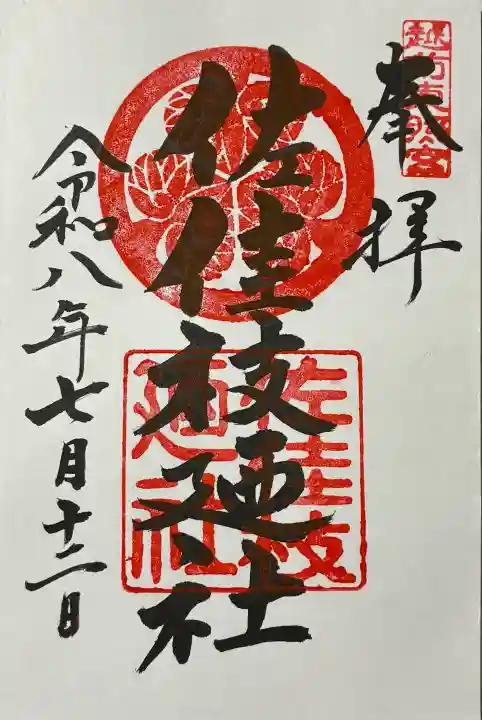 越前東照宮
奉拝
佐佳枝廼社
佐佳枝
廼社
令和八年七月十二日